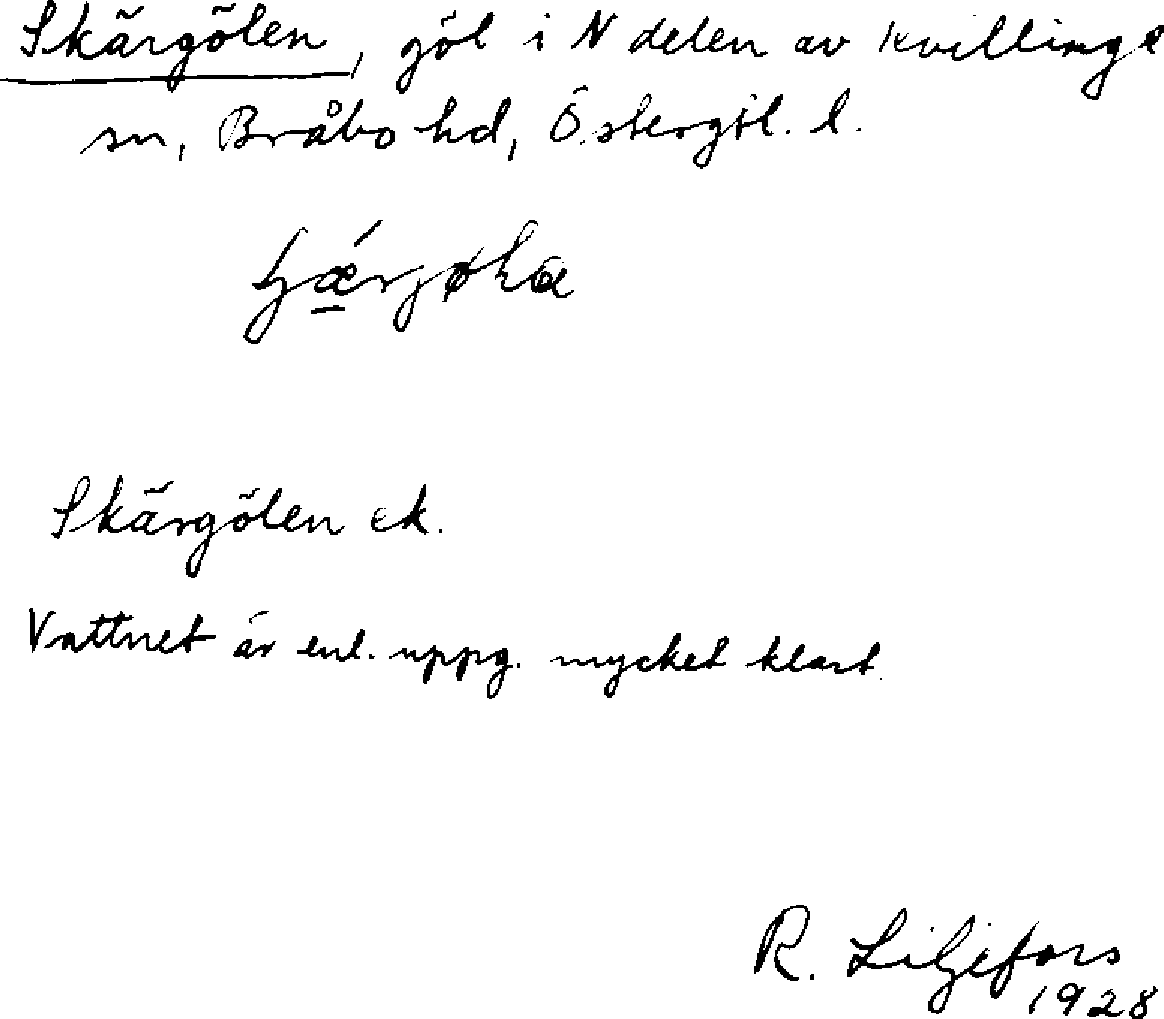 Skärgölen, göl i N delen av Kvillinge
sn, Bråbo hd, Östergötl. l.
Skärgölen ek.
Vattnet är enl. uppg. mycket klart.
R. Liljefors
1928